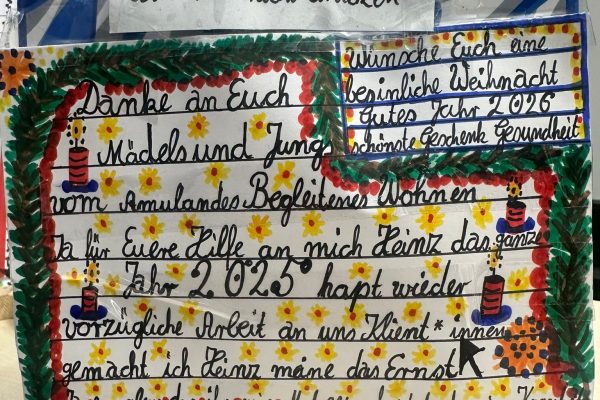 Wünsche Euch eine
besinliche Weihnacht
Gutes Jahr 2026
schönste Geschenk Gesundheit
Danke an Euch
Mädels und Jungs
vom Amulandes Begleitenes Wohnen
Ja für Euere Hilfe an mich Heinz das ganze
Jahr 2025 hapt wieder
vorzügliche Arbeit an uns Klient*innen
gemacht ich Heinz meine das Ernst